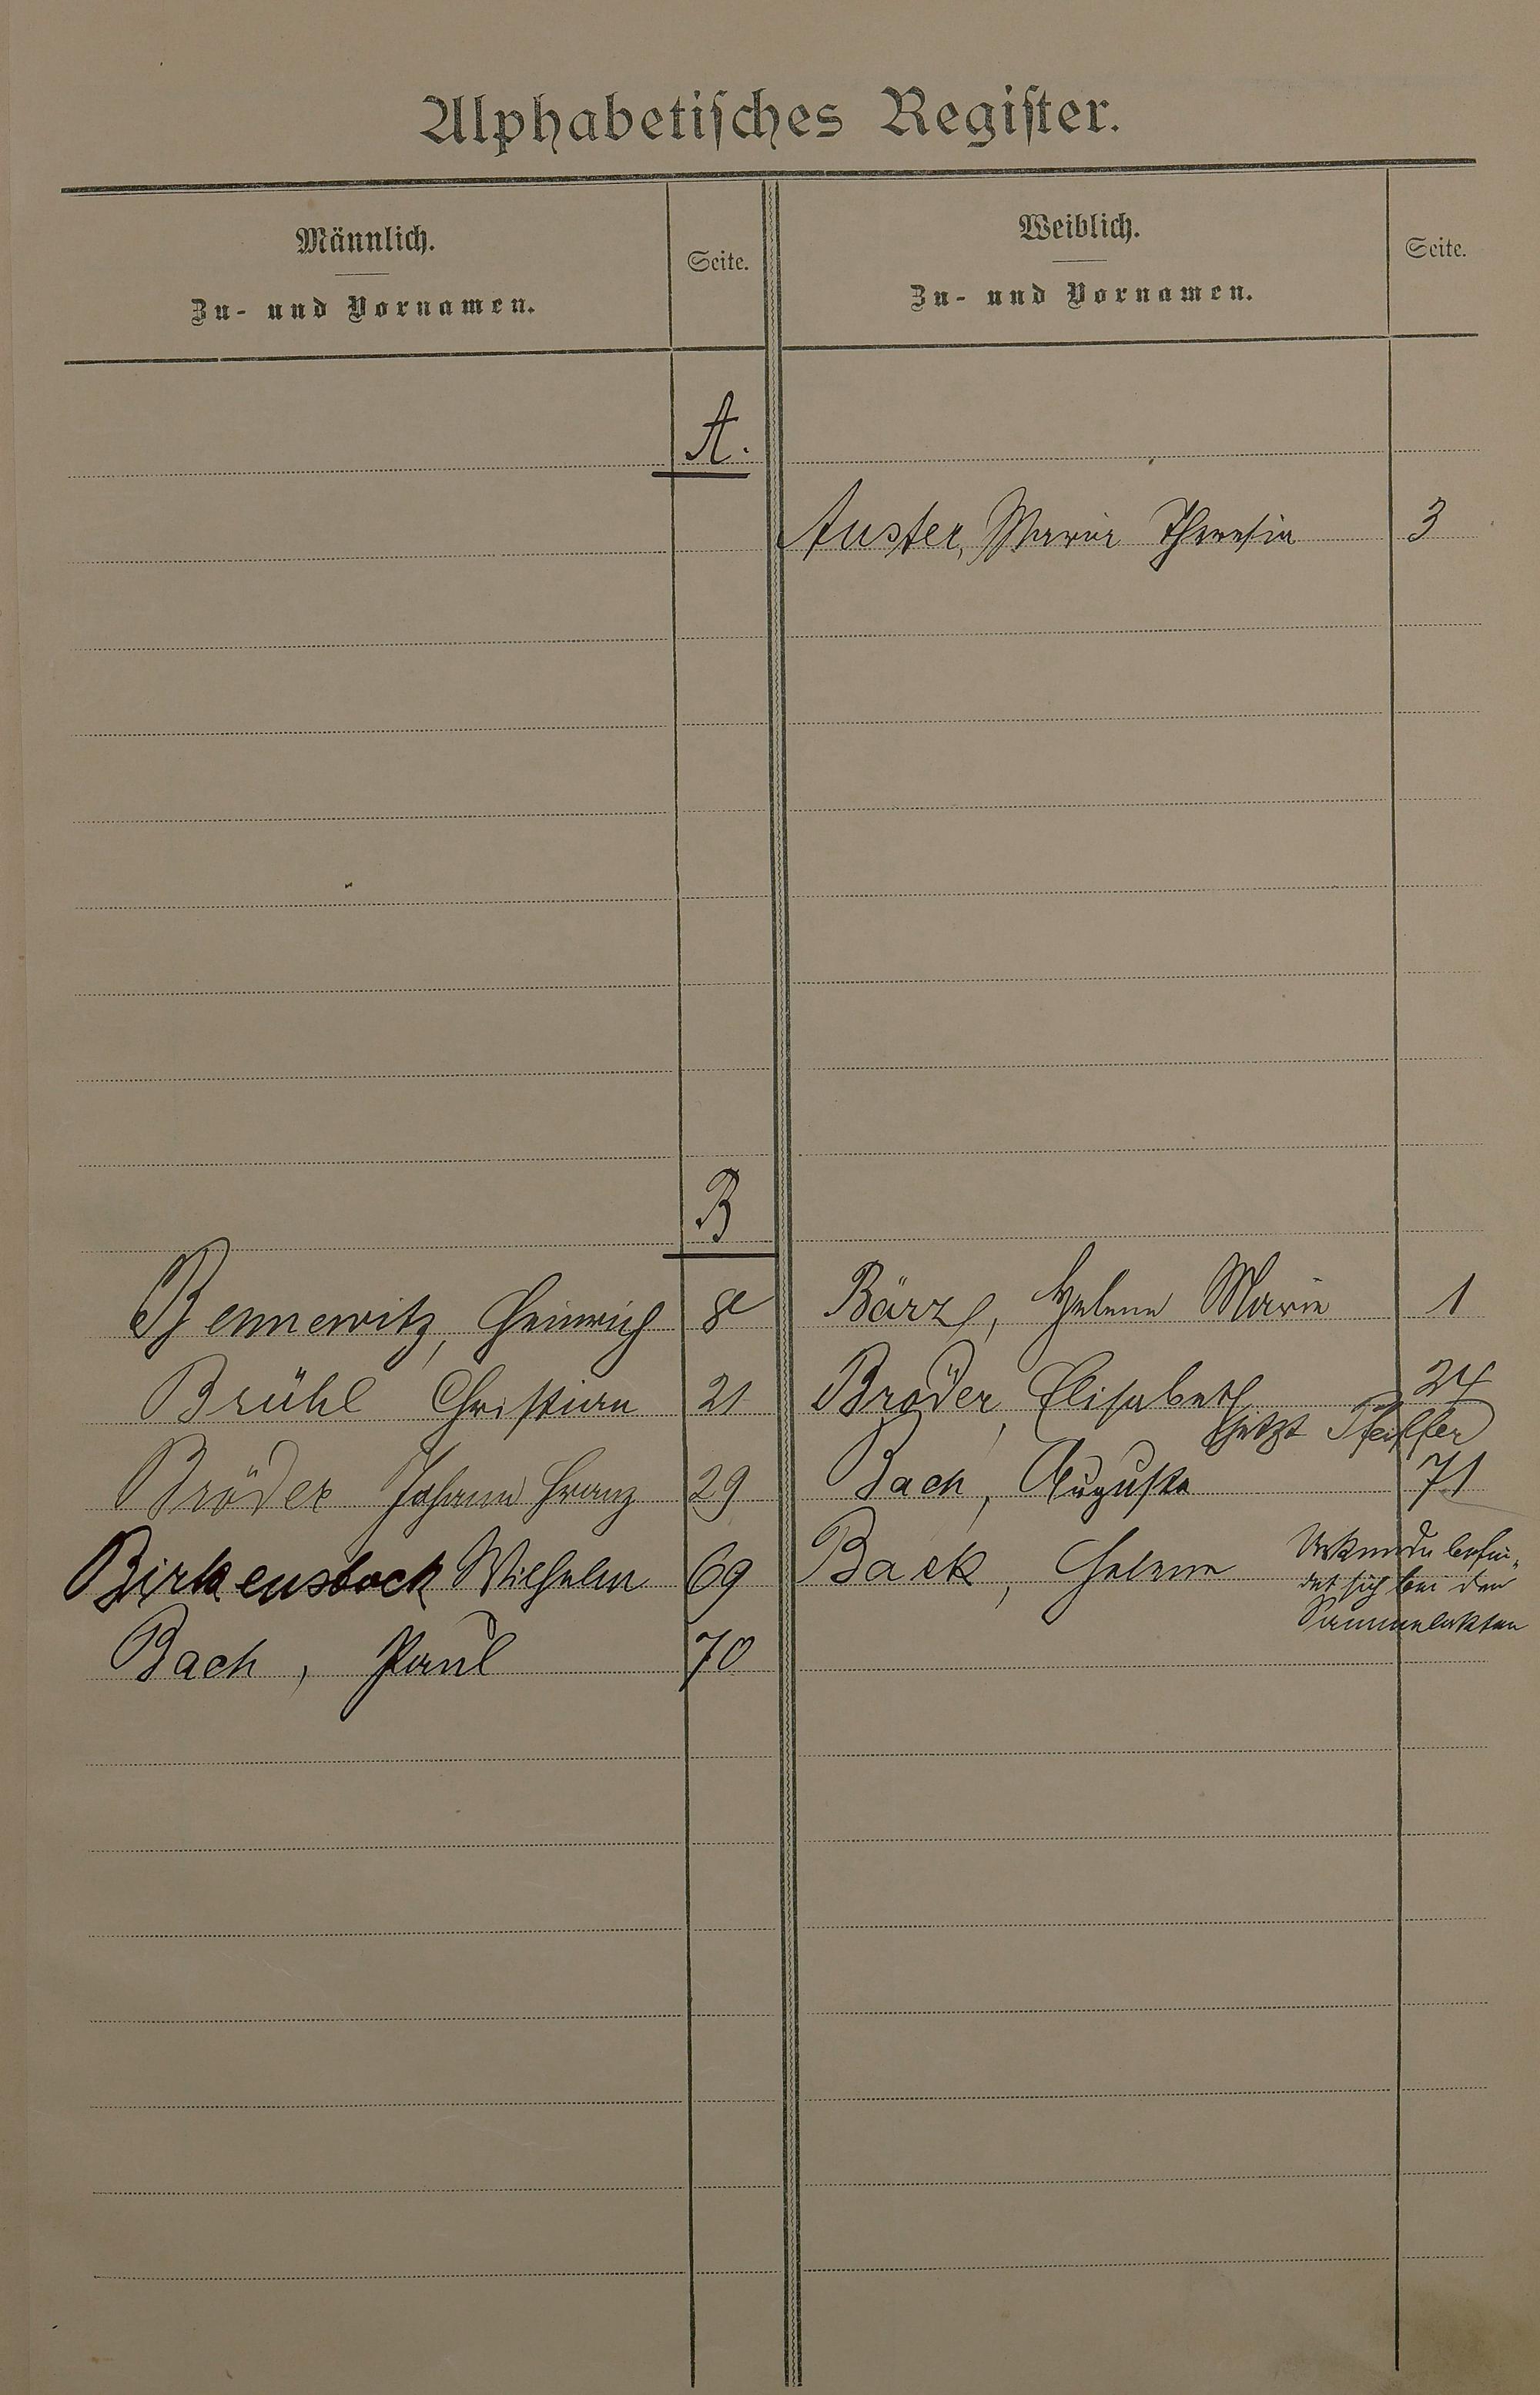 Alphabetisches Register.
Männlich.
Zu- und Vornamen.
Seite.
Weiblich.
Zu- und Vornamen.
Seite.
A.
Auster, Maria Theresia 3
B
Bennewitz, Heinrich 8
Bärz, Helene Marie 1
Brühl Christian 21
Bröder, Elisabeth 24
jetzt Pfeiffer
Bröder Johann Franz 29
Bach, Augusta 71
Birkenstock Wilhelm 69
Back, Helene
Urkunde befin-
det sich bei den
Sammelakten
Bach, Paul 70